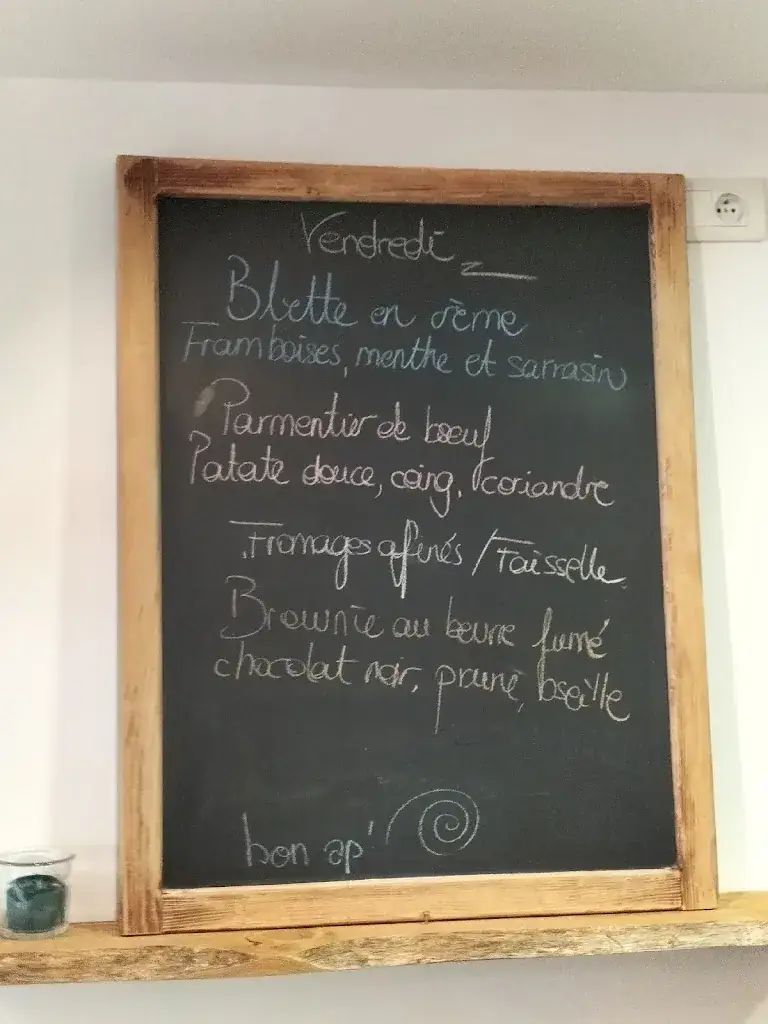 Vendredi
Blette en crème
Framboises, menthe et sarrasin
Parmentier de boeuf
Patate douce, coing, coriandre
Fromages affinés / Faisselle
Brownie au beurre fumé
chocolat noir, prune, oseille
bon ap'